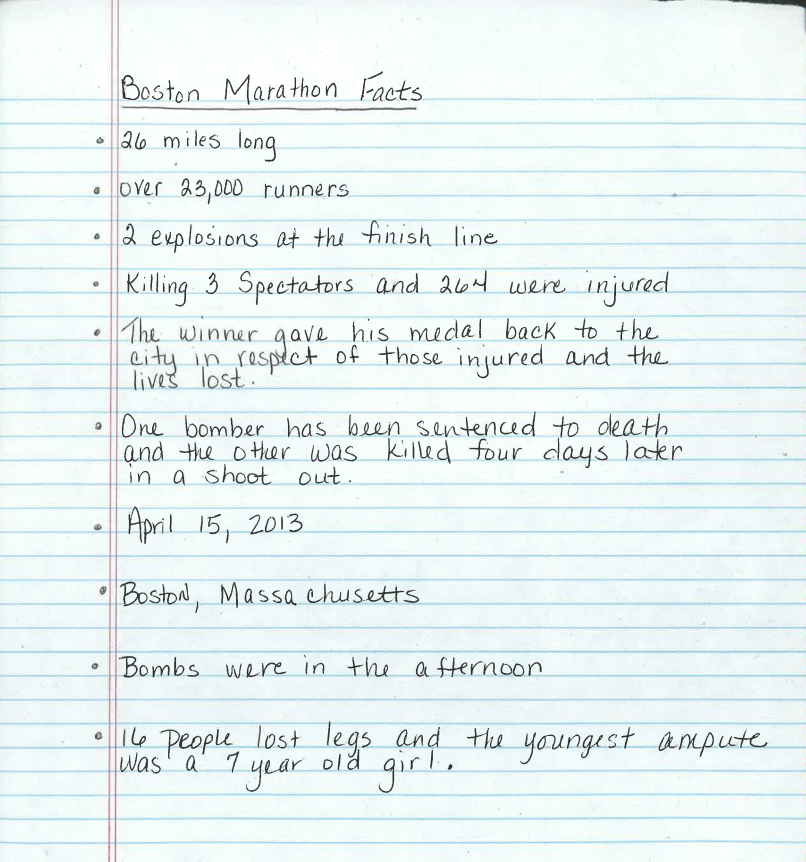 Boston Marathon Facts
• 26 miles long
• over 23,000 runners
• 2 explosions at the finish line
• Killing 3 Spectators and 264 were injured
• The winner gave his medal back to the
city in respect of those injured and the
lives lost.
• One bomber has been sentenced to death
and the other was killed four days later
in a shoot out.
• April 15, 2013
• Boston, Massachusetts
• Bombs were in the afternoon
• 16 people lost legs and the youngest ampute
was a 7 year old girl.